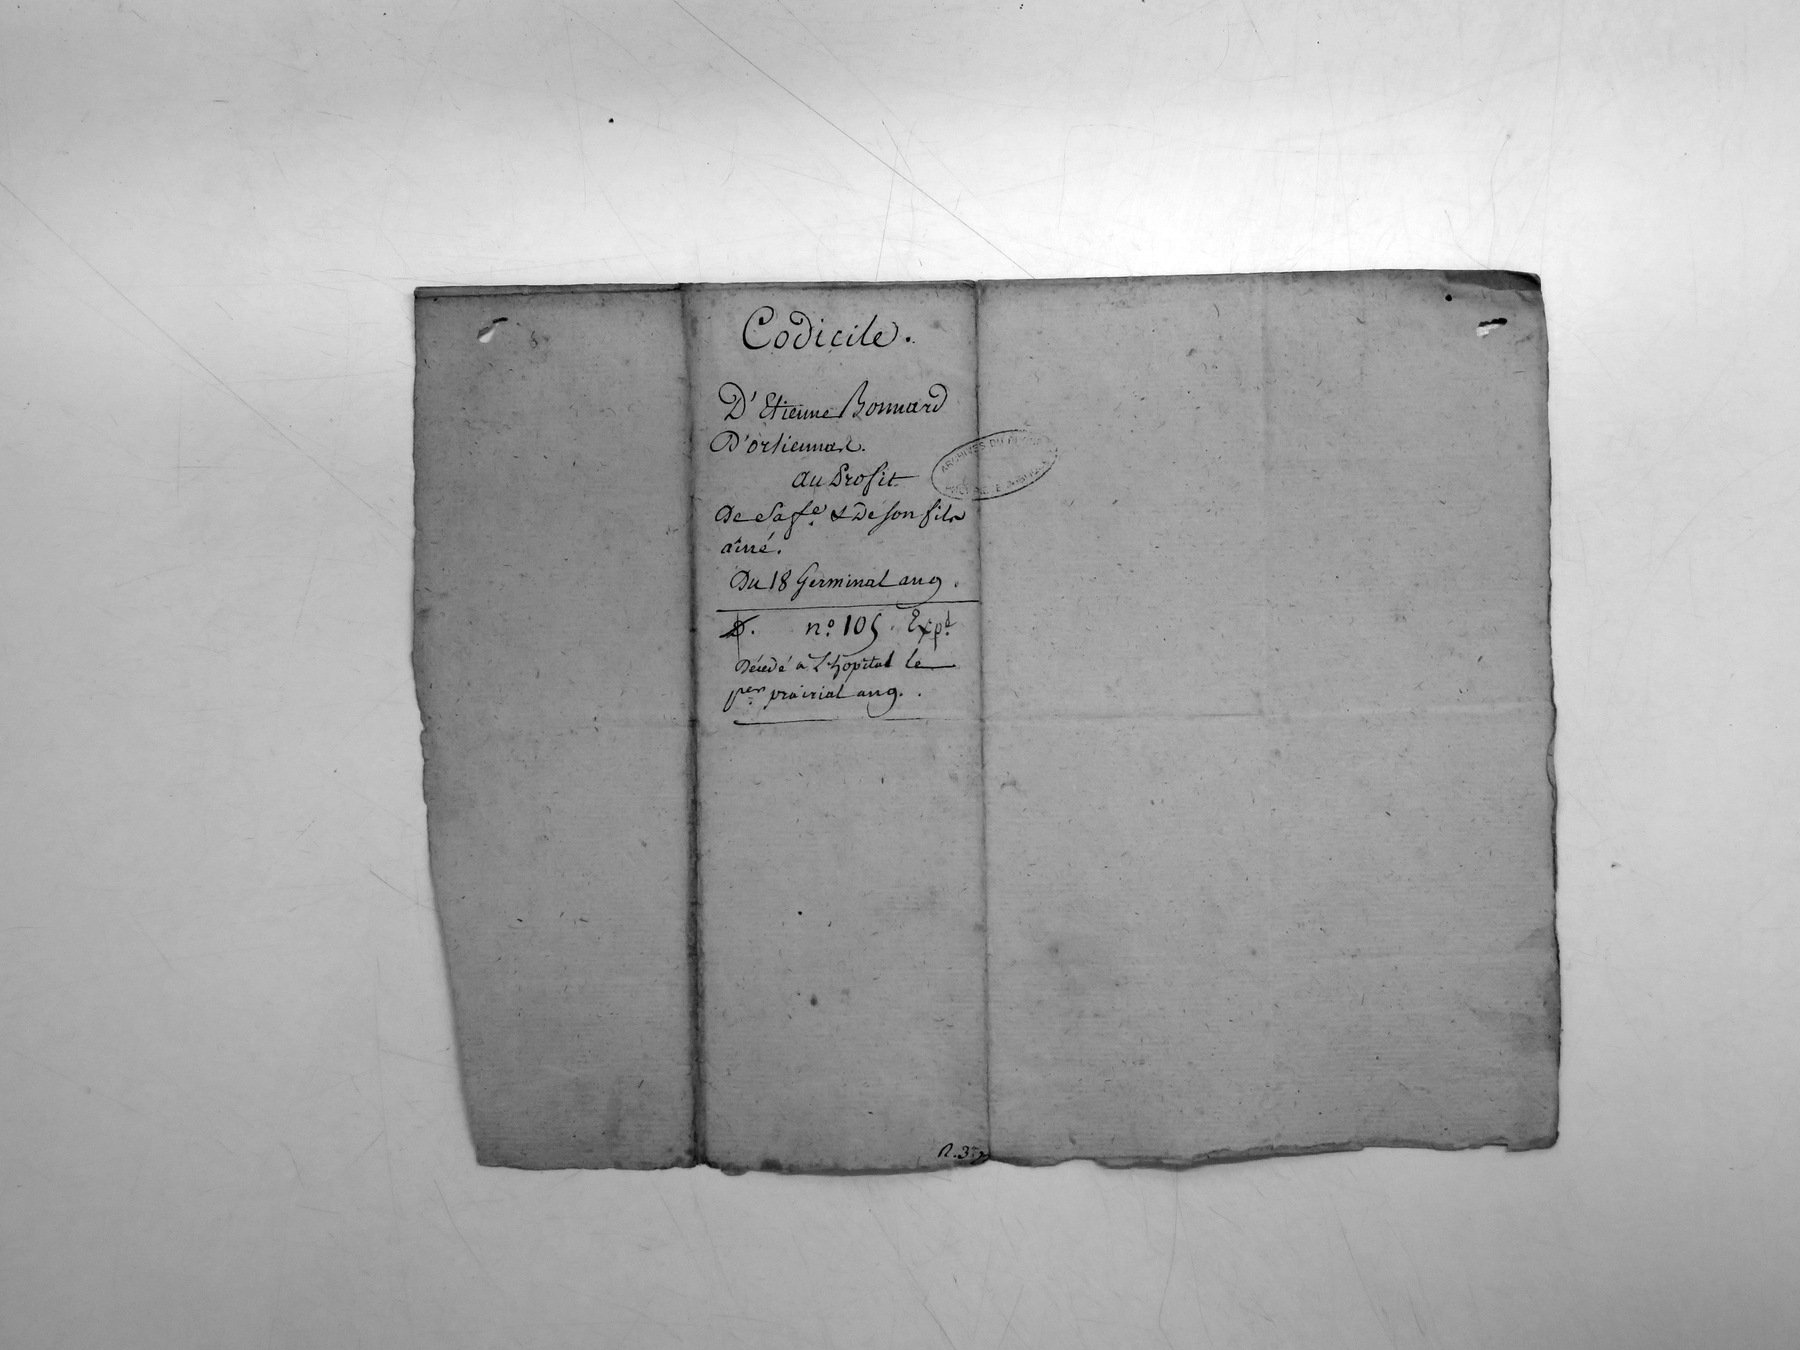 Codicile.
D'Etienne Bonnard
D'ortiennas.
au Profit
De Sa fe. & De Son fils
aîné.
Du 18 Germinal an 9.
D. n.o 105. Expd.
Décédé à L'hopital le
per. prairial an 9.
ARCHIVES DU
R. 3